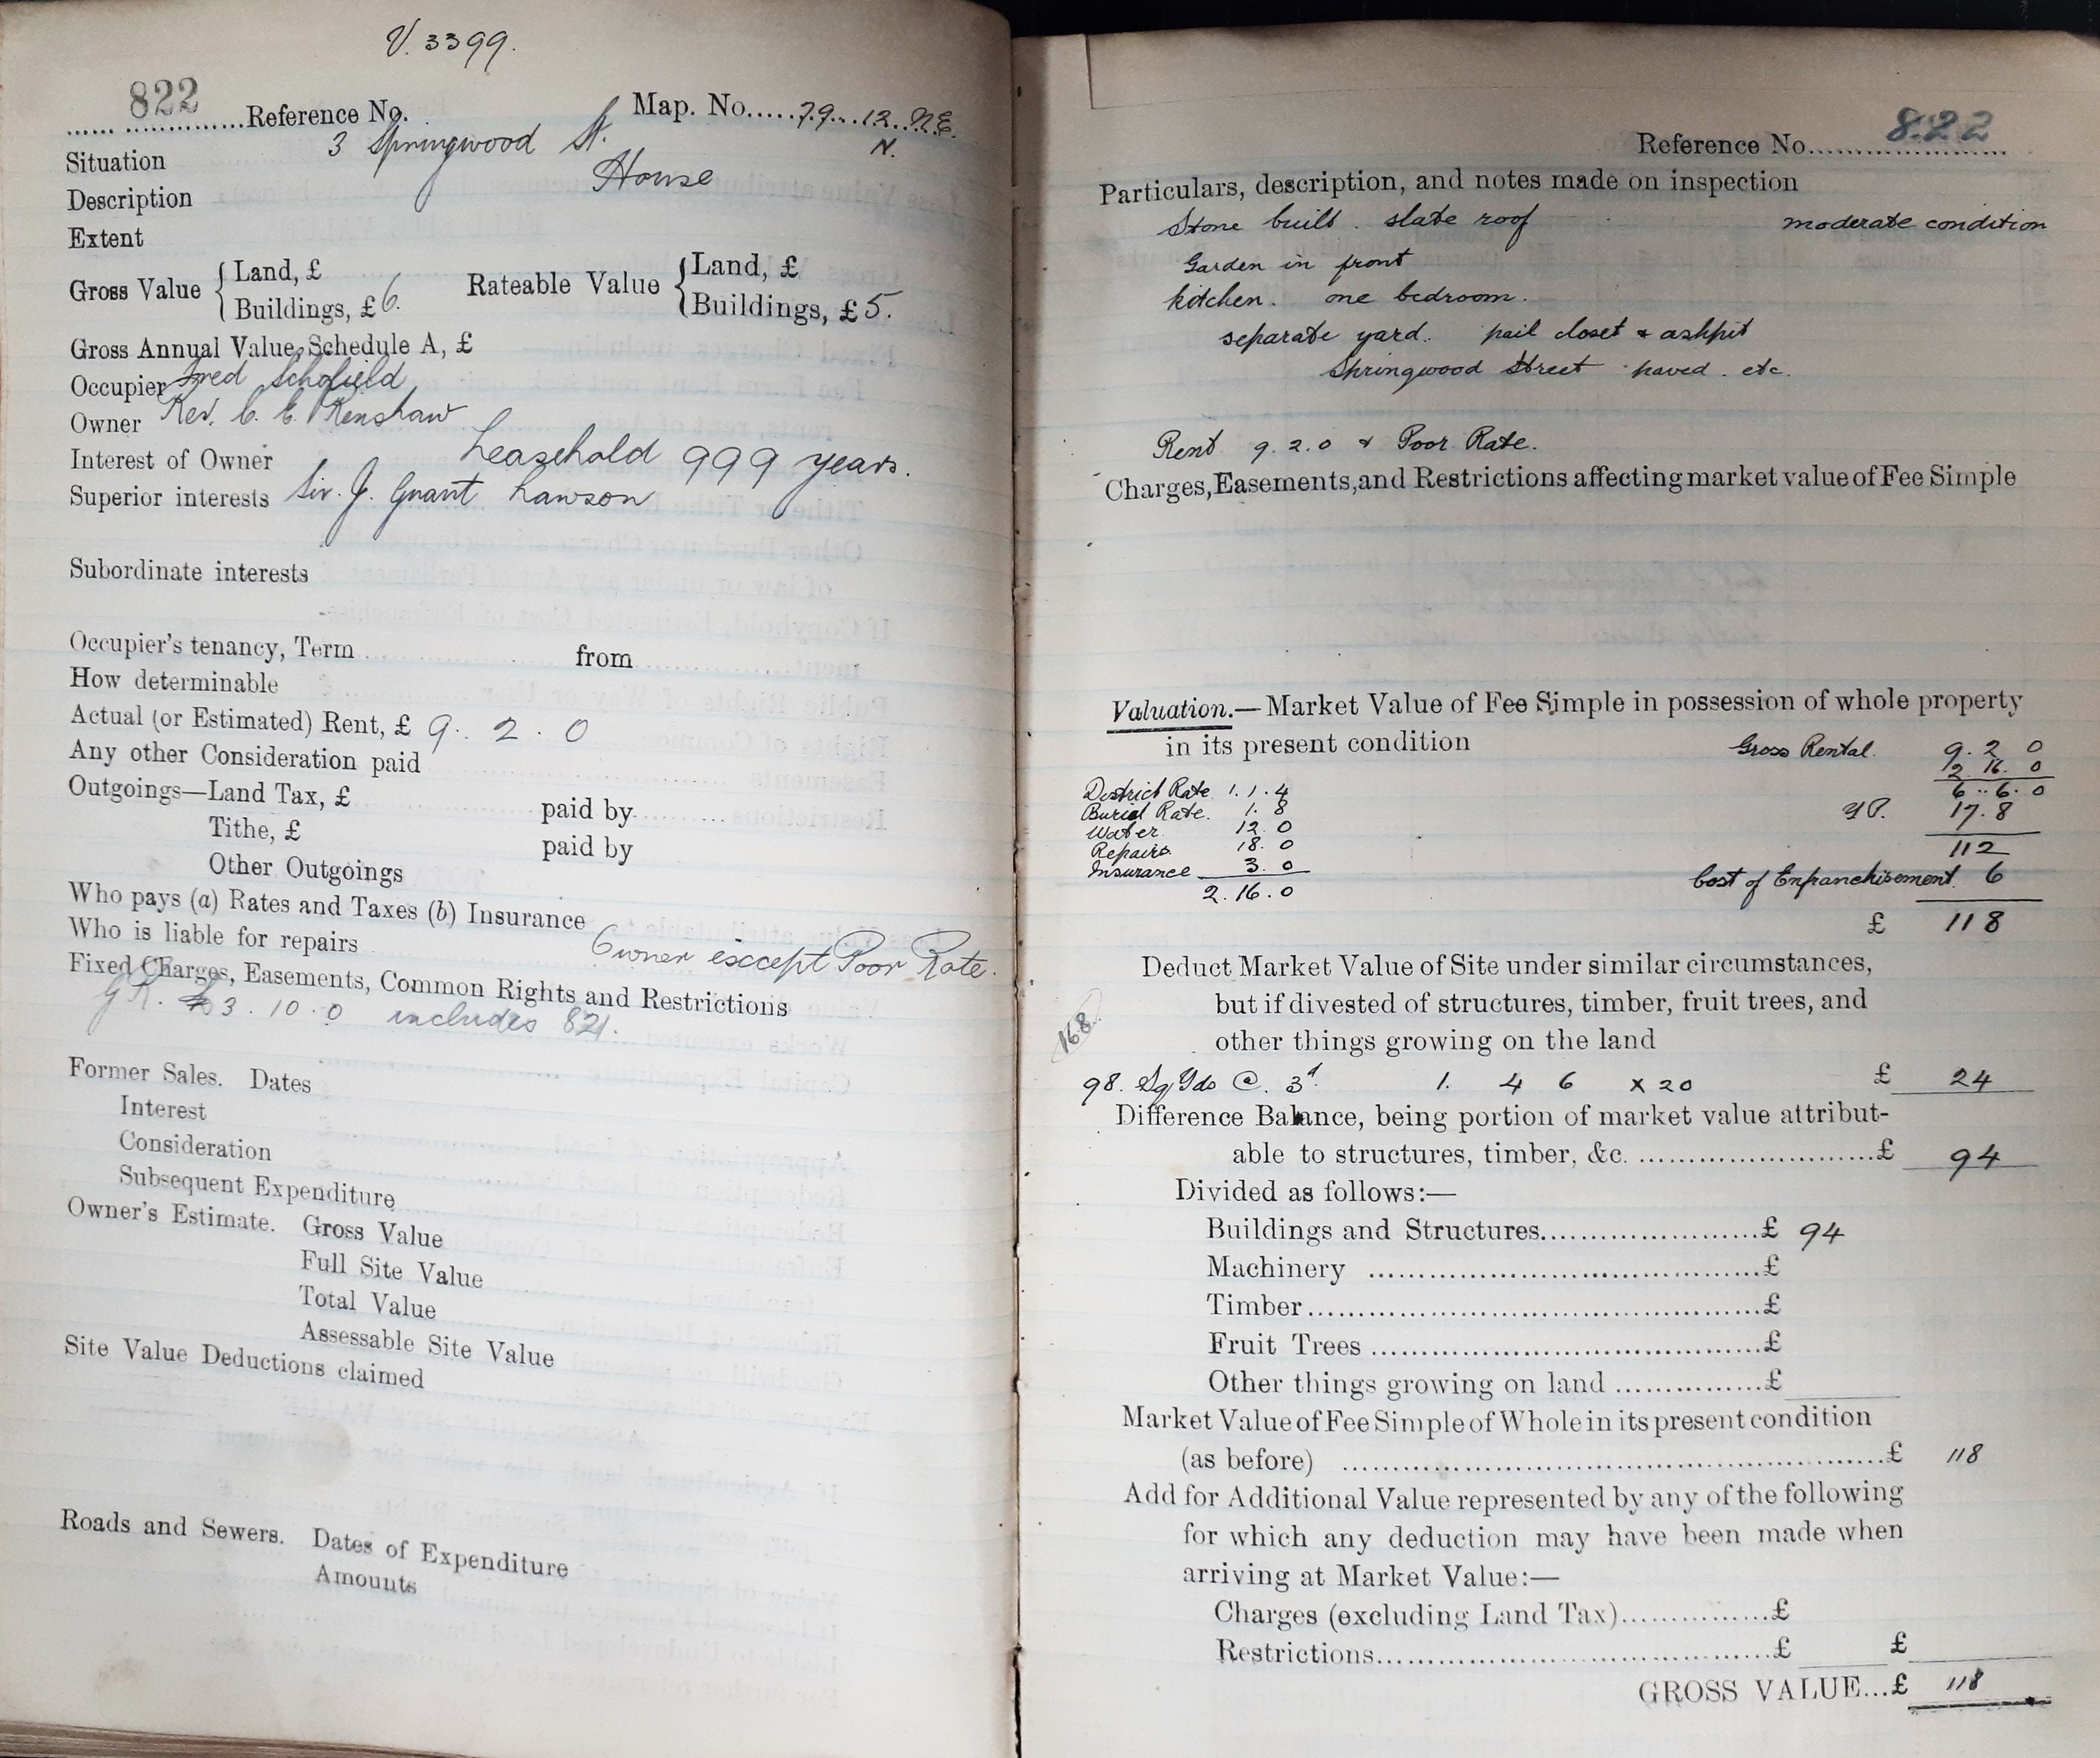 V. 3399.
822 Reference No. Map. No. 79. 12. N.E.
N.
Situation 3 Springwood St.
Description House
Extent
Gross Value { Land, £ Rateable Value { Land, £
Buildings, £ 6. Buildings, £ 5.
Gross Annual Value, Schedule A, £
Occupier Fred Schofield
Owner Rev. C. E. Renshaw
Interest of Owner Leasehold 999 years.
Superior interests Sir. J. Grant Lawson
Subordinate interests
Occupier's tenancy, Term from
How determinable
Actual (or Estimated) Rent, £ 9. 2. 0
Any other Consideration paid
Outgoings—Land Tax, £ paid by
Tithe, £ paid by
Other Outgoings
Who pays (a) Rates and Taxes (b) Insurance
Who is liable for repairs Owner except Poor Rate.
Fixed Charges, Easements, Common Rights and Restrictions
G.R. £3. 10. 0 includes 821.
Former Sales. Dates
Interest
Consideration
Subsequent Expenditure
Owner's Estimate. Gross Value
Full Site Value
Total Value
Assessable Site Value
Site Value Deductions claimed
Roads and Sewers. Dates of Expenditure
Amounts
Reference No. 822
Particulars, description, and notes made on inspection
Stone built. slate roof moderate condition
Garden in front
kitchen. one bedroom.
separate yard. pail closet & ashpit
Springwood Street paved. etc.
Rent 9. 2. 0 & Poor Rate.
Charges, Easements, and Restrictions affecting market value of Fee Simple
Valuation.—Market Value of Fee Simple in possession of whole property
in its present condition Gross Rental. 9. 2 0
2. 16. 0
District Rate 1. 1. 4 6. 6. 0
Burial Rate. 1. 8 YP. 17.8
Water 12. 0
Repairs 18. 0 112
Insurance 3. 0 Cost of Enfranchisement 6
2. 16. 0
£ 118
Deduct Market Value of Site under similar circumstances,
but if divested of structures, timber, fruit trees, and
168 other things growing on the land
98. Sq Yds @. 3d. 1. 4 6 x 20 £ 24
Difference Balance, being portion of market value attribut-
able to structures, timber, &c. £ 94
Divided as follows:—
Buildings and Structures £ 94
Machinery £
Timber £
Fruit Trees £
Other things growing on land £
Market Value of Fee Simple of Whole in its present condition
(as before) £ 118
Add for Additional Value represented by any of the following
for which any deduction may have been made when
arriving at Market Value:—
Charges (excluding Land Tax) £
Restrictions £ £
GROSS VALUE...£ 118